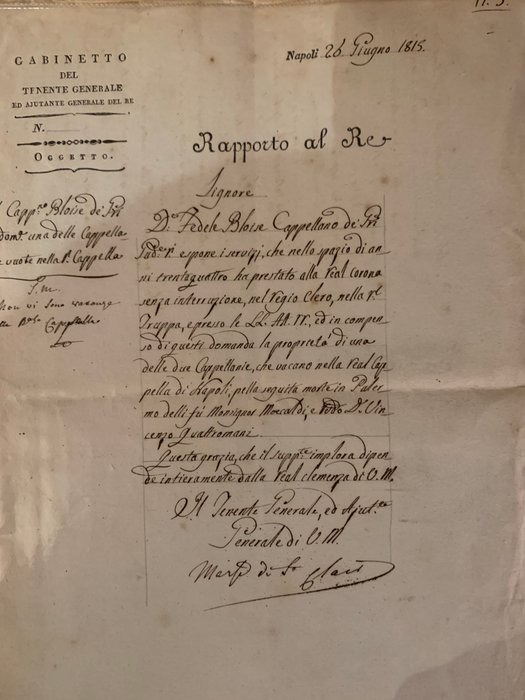 N. 3.
GABINETTO
DEL
TENENTE GENERALE
ED AJUTANTE GENERALE DEL RE
N.
OGGETTO.
Napoli 26 Giugno 1815.
Rapporto al Re
Capp.no Bloise de' Gri
dom.a una delle Cappella
e vuote nella R.l Cappella
S. M.
Non vi sono vacanze
Cappella
Signore
D.n Fedele Bloise Cappellano de' Gri
espone i servizj, che nello spazio di an
ni trentaquattro ha prestato alla real corona
senza interruzione, nel regio Clero, nella r.l
Truppa, e presso le LL. AA. rr., ed in compen
so di questi domanda la proprietà di una
delle due Cappellanie, che vacano nella Real Cap
pella di Napoli, pella seguita morte in Paler
mo delli fù Monsignor Moscaldi, e D. Vin
cenzo Quattromani.
Questa grazia, che il supp.te implora dipen
de intieramente dalla real clemenza di V. M.
Il Tenente Generale, ed Ajut.te
Generale di V. M.
March. di S. Clair